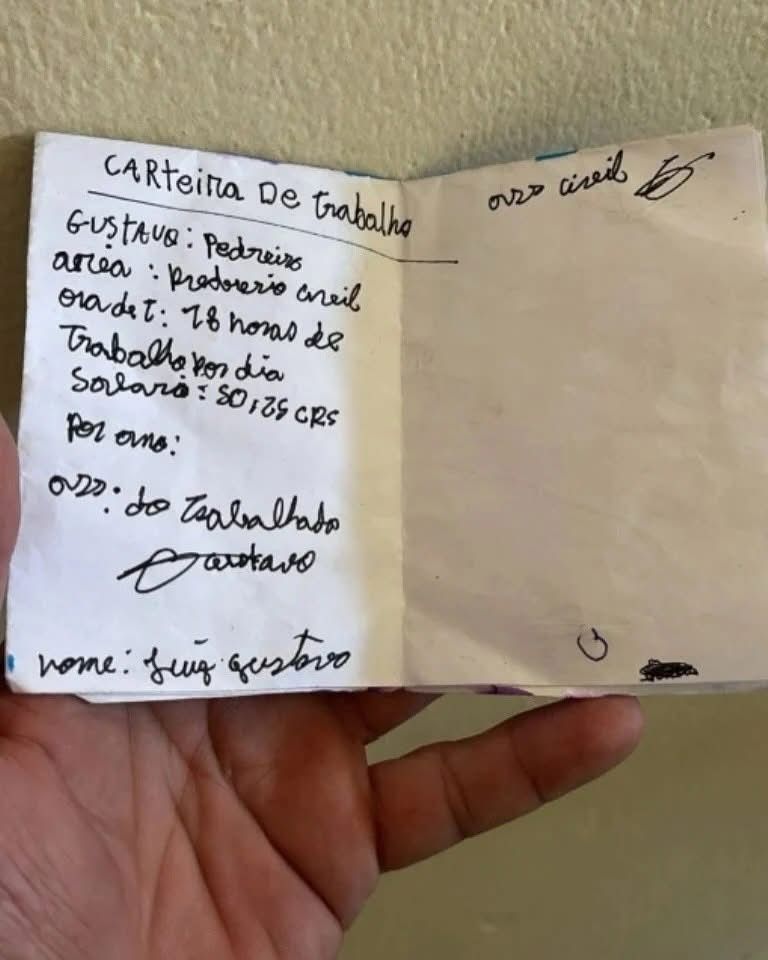 CARTEIRA DE trabalho
GUSTAVO: Pedreiro
area : Predorerio cireil
ora de T: 18 horas de
Trabalho por dia
Solario: 80,25 CRS
Por ano:
ass: do Trabalhado
Gustavo
nome: Luiz gustavo
ass cireil